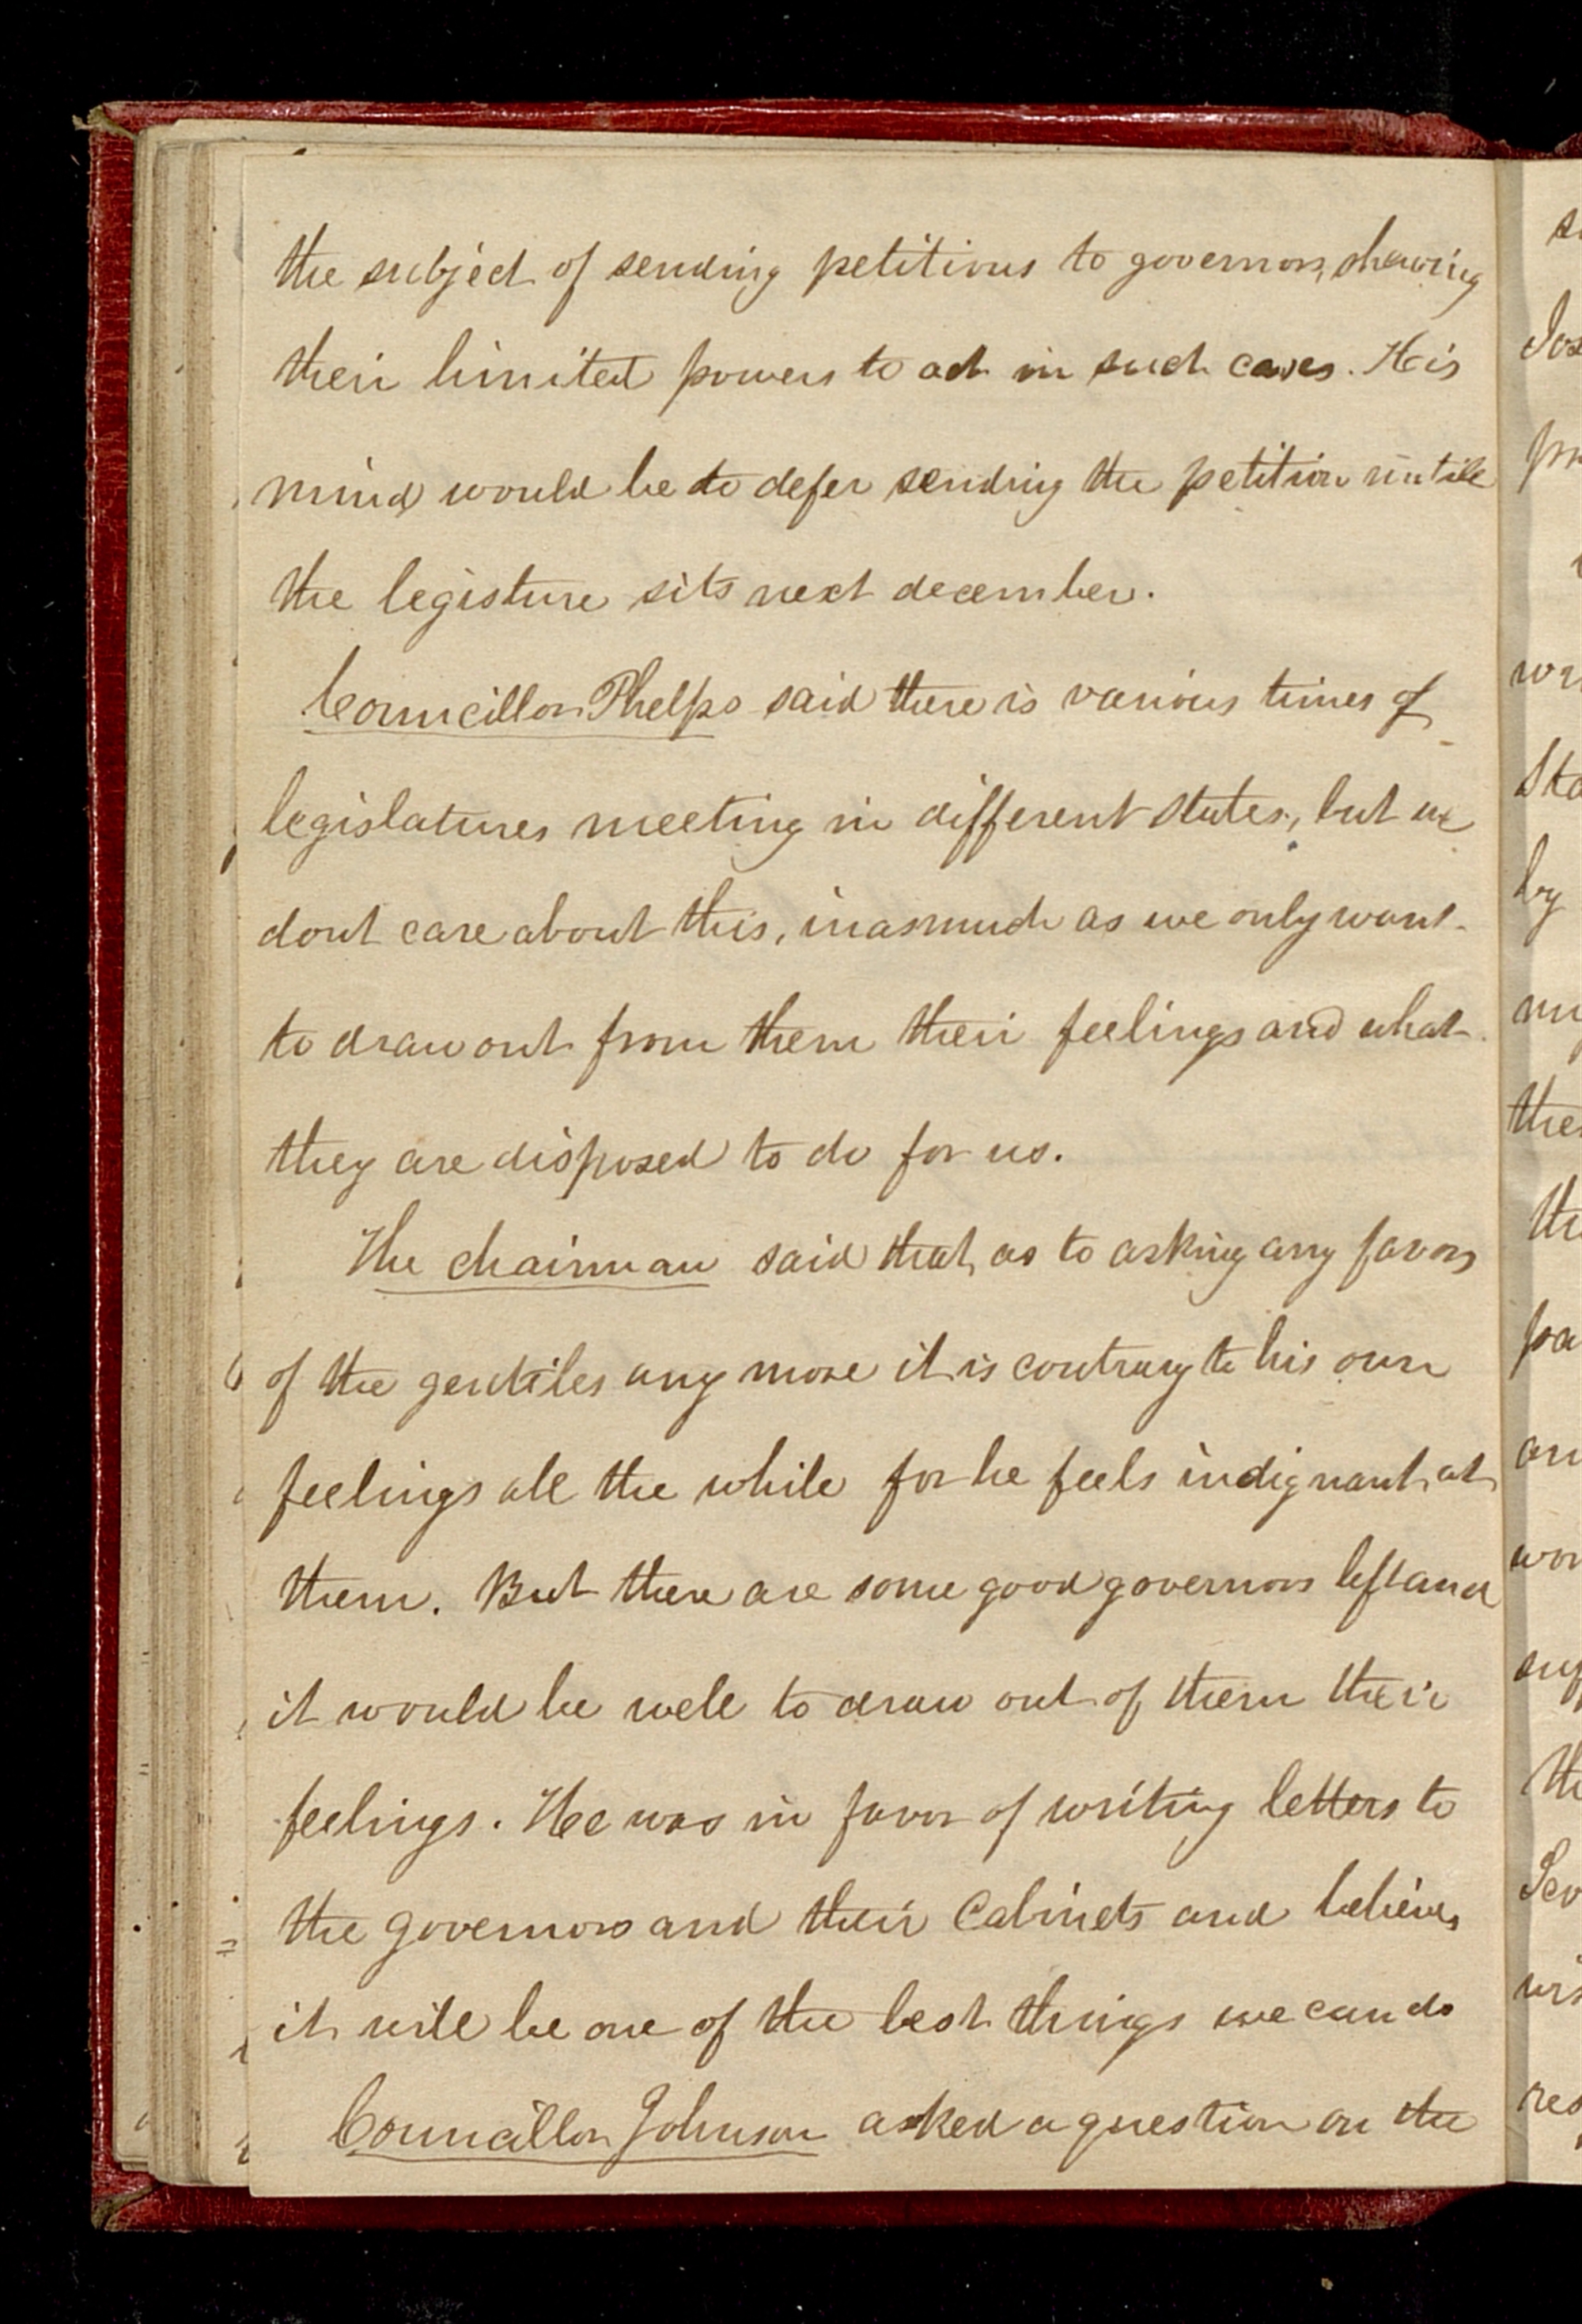 the subject of sending petitions to governors, shewing
their limited powers to act in such cases. His
mind would be to defer sending the petition untill
the legisture sits next december.
Councillor Phelps said there is various times of
legislatures meeting in different states, but we
dont care about this, inasmuch as we only want
to draw out from them their feelings and what
they are disposed to do for us.
The chairman said that, as to asking any favors
of the gentiles any more it is contrary to his own
feelings all the while for he feels indignant at
them. But there are some good governors left and
it would be well to draw out of them their
feelings. He was in favor of writing letters to
the governors and their Cabinets and believes
it will be one of the best things we can do
Councillor Johnson asked a question on the